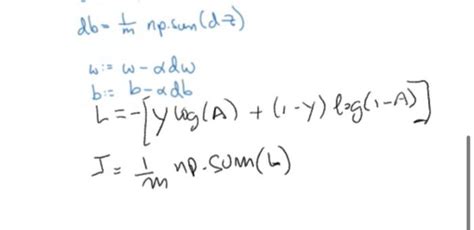 db = 1/m np.sum(dz)
w := w - αdw
b := b - αdb
L = -[Y log(A) + (1-Y) log(1-A)]
J = 1/m np.sum(L)